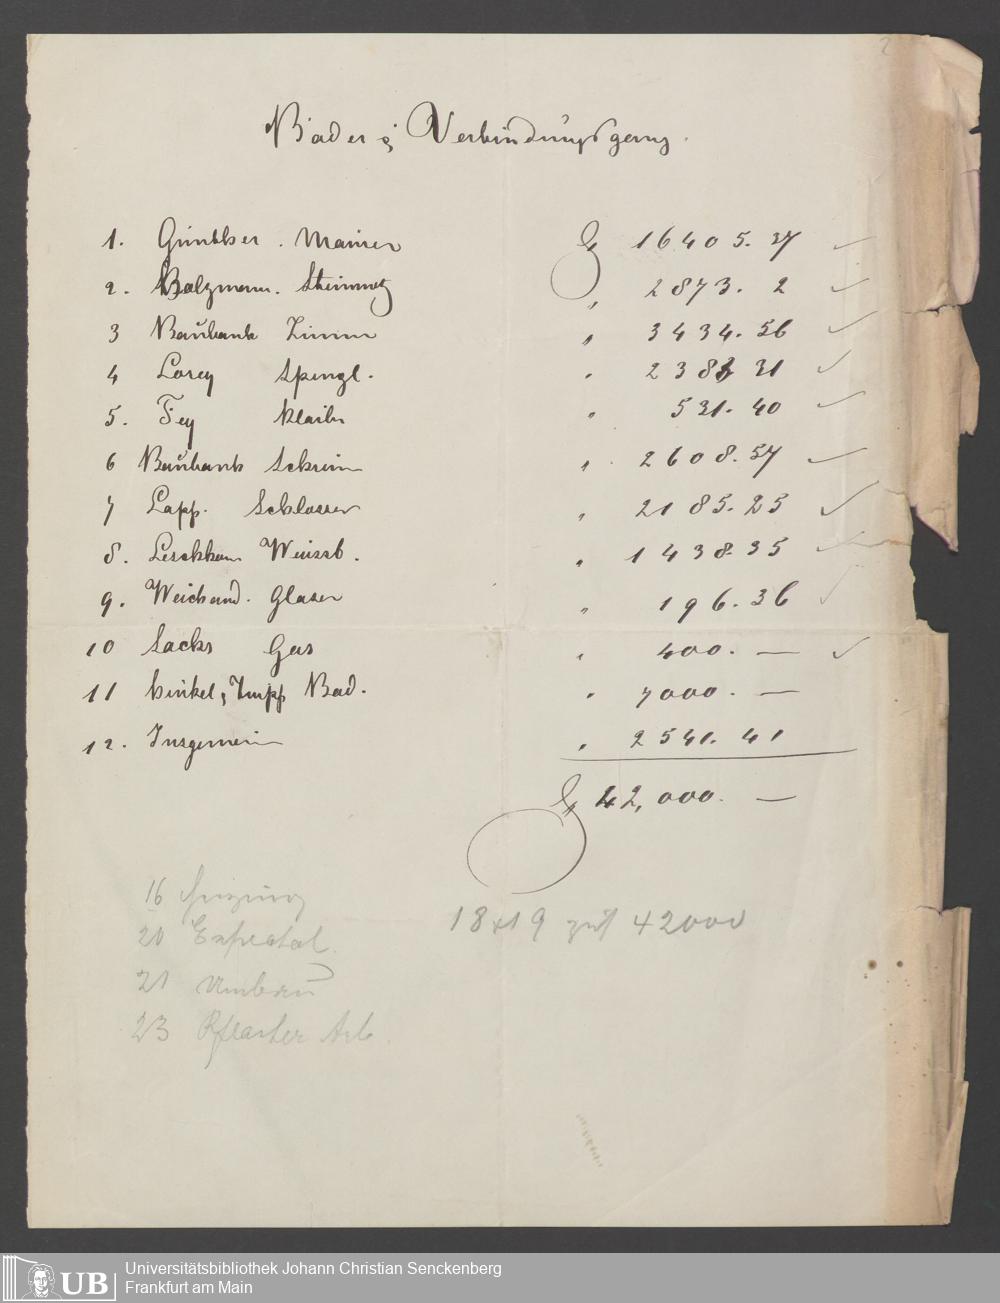 2
Bäder & Verbindungsgang.
1. Günther. Maurer fl 16405. 37
2. Balzmann. Steinmetz " 2873. 2
3 Baubank Zimm " 3434. 56
4 Lorey Spengl. " 2383 31
5. Fey Kleiber " 531. 40
6 Baubank Schrein " 2608. 57
7 Lapp. Schlosser " 2185. 25
8. Leschhorn Weissb. " 1438. 35
9. Weickard. Glaser " 196. 36
10 Sacks Gas " 400. —
11 Hinkel, Zupp Bad. " 7000. —
12. Insgemein " 2541. 41
fl 42,000. —
16 Heizung
20 18 x 19 zus 42000
21 Umbau
23 Pflaster Arb.
UB Universitätsbibliothek Johann Christian Senckenberg
Frankfurt am Main